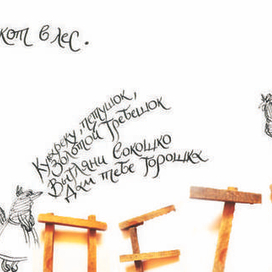 кот в лес.
Кукреку, петушок,
Золотой Гребешок
Выгляни в окошко
Дам тебе Горошка